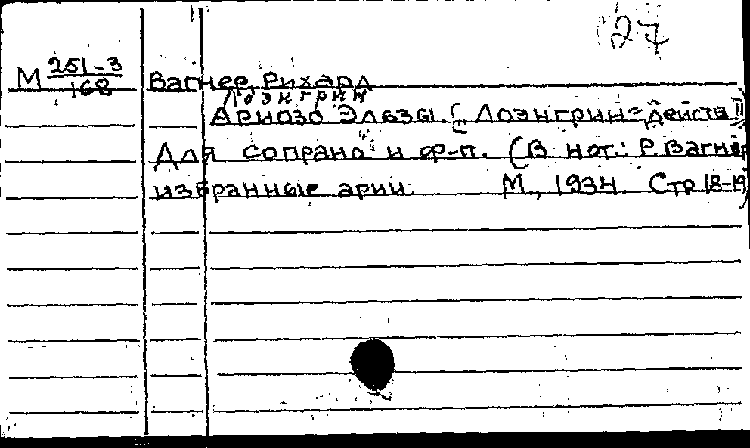 127
М 251-3/168 Вагнер, Рихард
[Лоэнгрин
Ариозо Эльзы. („Лоэнгрин" действ. II)
Для сопрано и ф-п. (В нот.: Р. Вагнер
избранные арии. М., 1934. Стр 18-19)